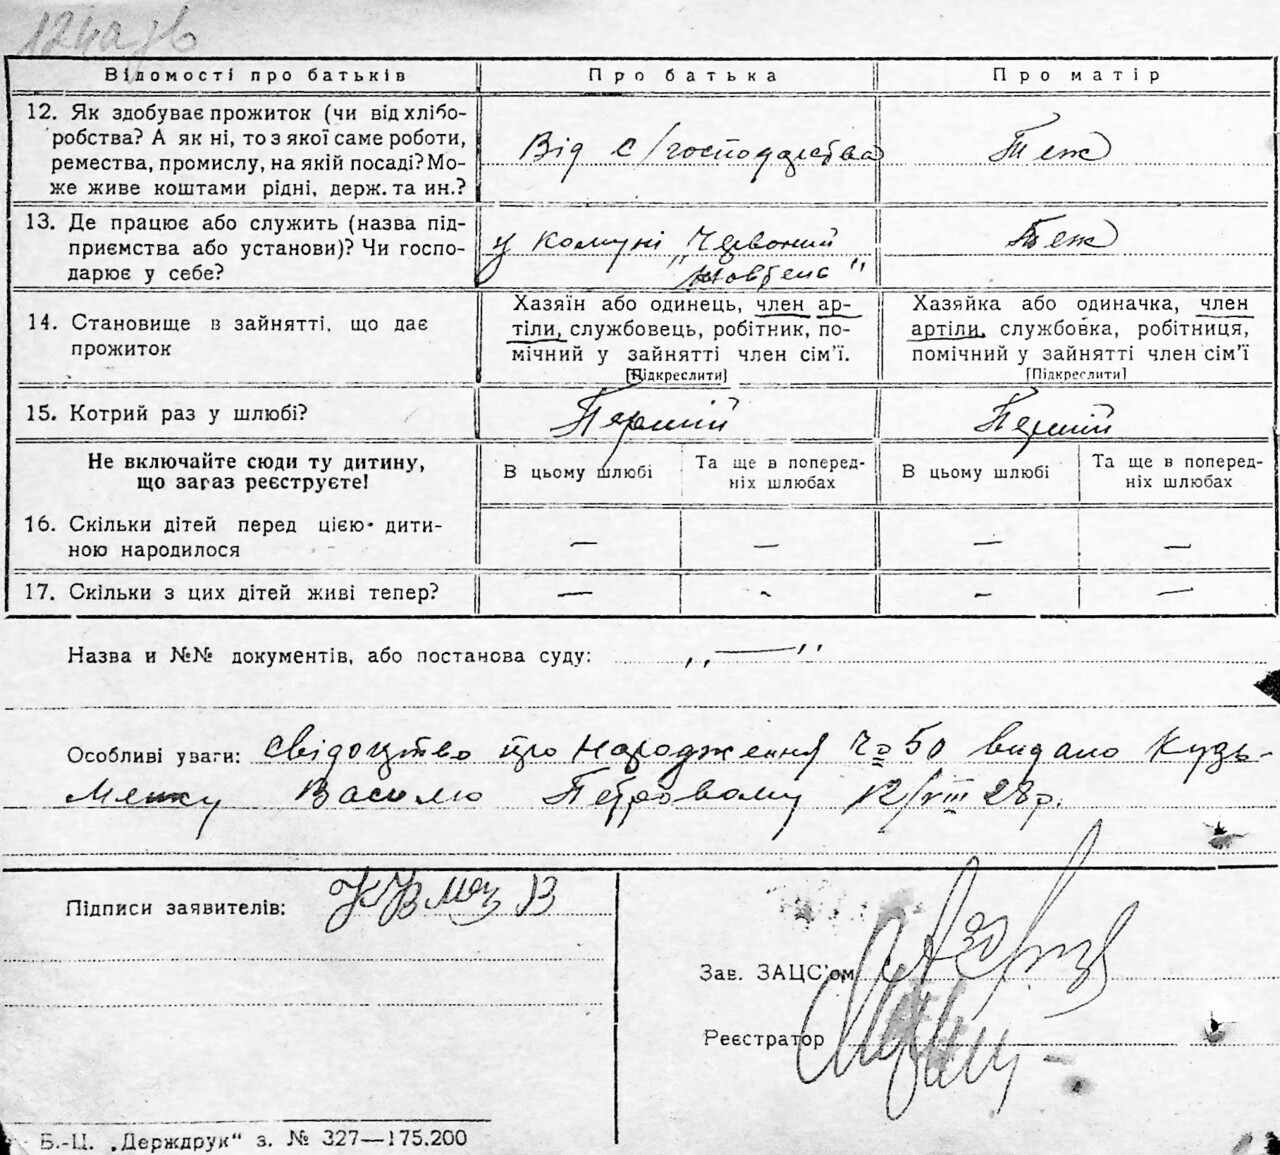 Відомості про батьків Про батька Про матір
12. Як здобуває прожиток (чи від хлібо-
робства? А як ні, то з якої саме роботи,
ремества, промислу, на якій посаді? Мо-
же живе коштами рідні, держ. та ин.?
Від с/господарства
Теж
13. Де працює або служить (назва під-
приємства або установи)? Чи госпо-
дарює у себе?
у комуні „Червоний
Жовтень"
Теж
14. Становище в зайнятті, що дає
прожиток
Хазяїн або одинець, член ар-
тіли, службовець, робітник, по-
мічний у зайнятті член сім'ї.
[Підкреслити]
Хазяйка або одиначка, член
артіли, службовка, робітниця,
помічний у зайнятті член сім'ї
[Підкреслити]
15. Котрий раз у шлюбі? Перший Перший
Не включайте сюди ту дитину,
що зараз реєструєте!
В цьому шлюбі
Та ще в поперед-
ніх шлюбах
В цьому шлюбі
Та ще в поперед-
ніх шлюбах
16. Скільки дітей перед цією дити-
ною народилося
— — — —
17. Скільки з цих дітей живі тепер? — - - —
Назва и №№ документів, або постанова суду: „—"
Особливі уваги: свідоцтво про народження Чо 50 видано Кузь-
менку Василю Петровому 12/VIII 28 р.
Підписи заявителів:
Зав. ЗАЦС'ом
Реєстратор
Б.-Ц. „Держдрук" з. № 327—175.200